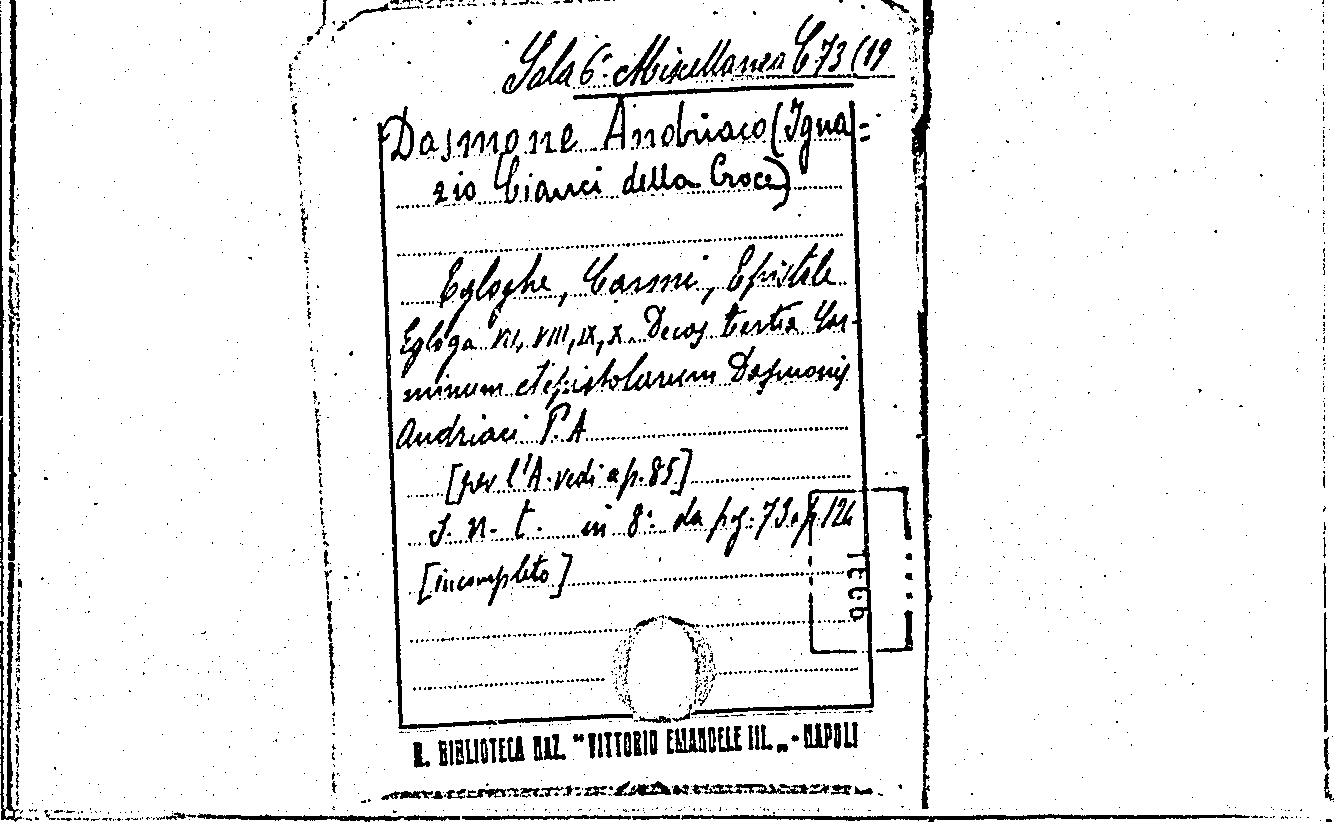 Sala 6ª Miscellanea C 73 (19
Dasmone Andriaco (Igna=
zio Cianci della Croce)
Egloghe, Carmi, Epistole
Egloga VII, VIII, IX, X. Decas tertia Car-
minum et epistolarum Dasmonis
Andriaci P. A
[per l'A. vedi a p. 85]
S. n. t. in 8º da pg. 73 a p. 124
[incompleto]
R. BIBLIOTECA NAZ. "VITTORIO EMANUELE III. „ - NAPOLI